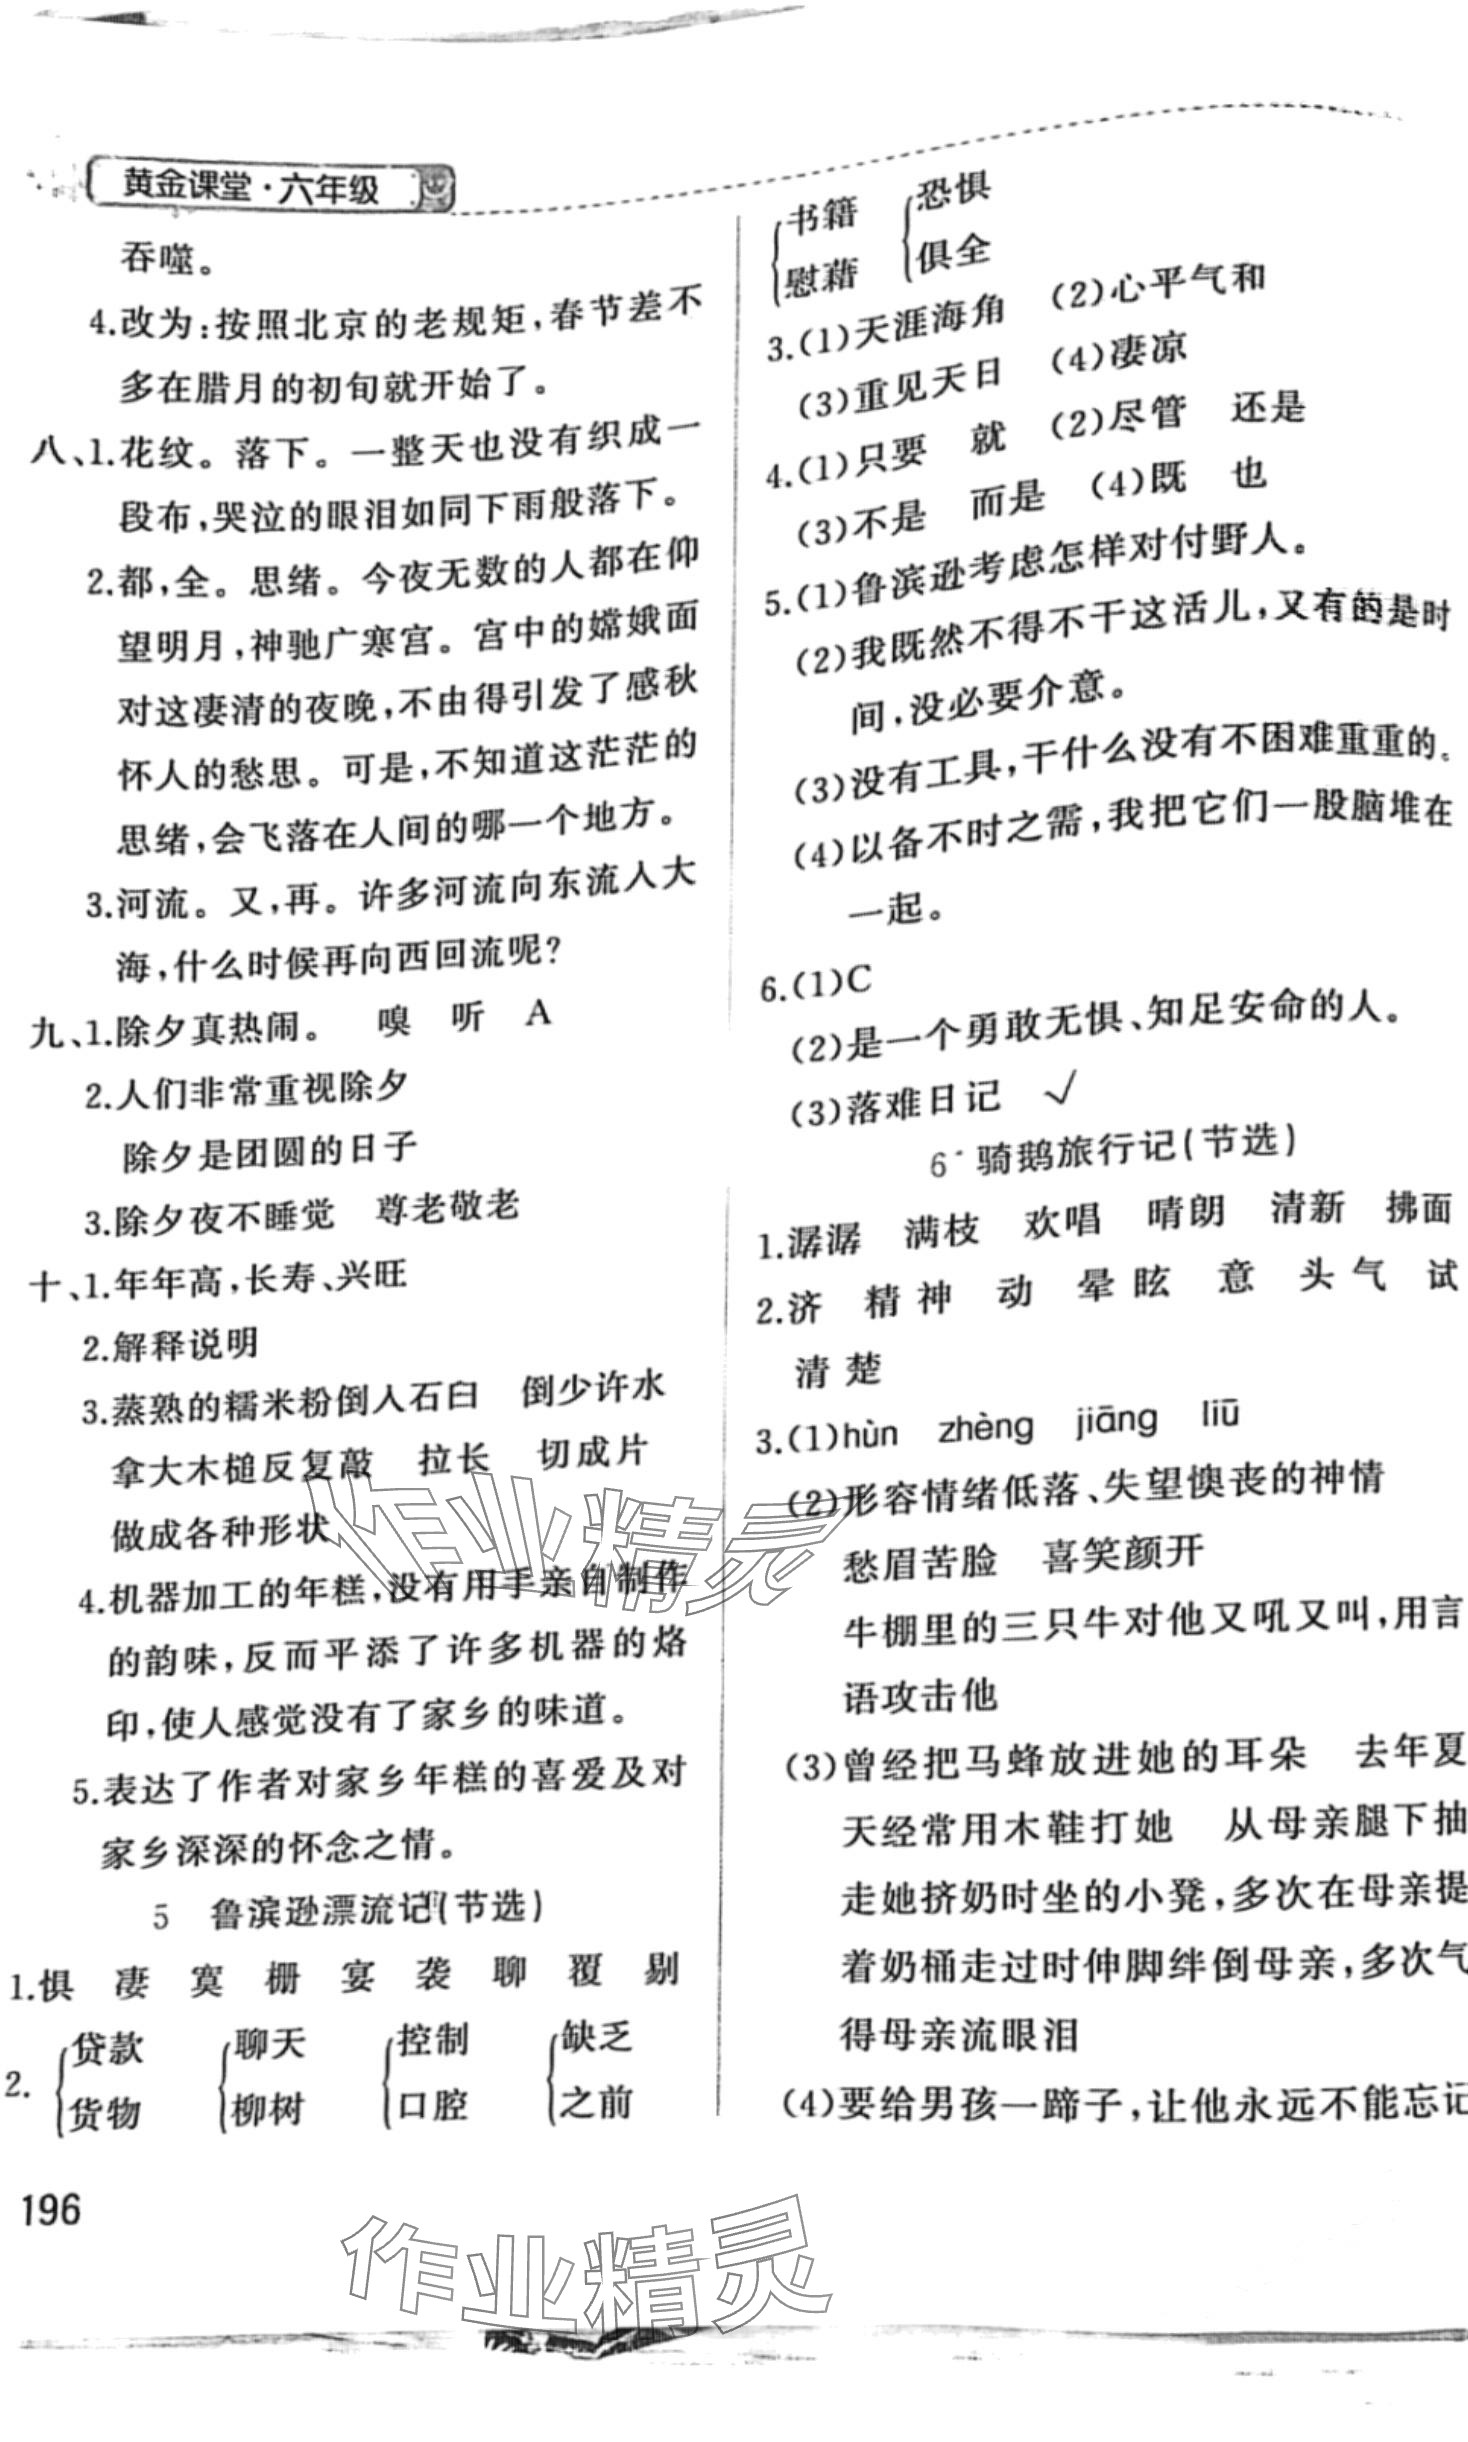 黄金课堂·六年级
吞噬。
4.改为:按照北京的老规矩,春节差不
多在腊月的初旬就开始了。
八、1.花纹。落下。一整天也没有织成一
段布,哭泣的眼泪如同下雨般落下。
2.都,全。思绪。今夜无数的人都在仰
望明月,神驰广寒宫。宫中的嫦娥面
对这凄清的夜晚,不由得引发了感秋
怀人的愁思。可是,不知道这茫茫的
思绪,会飞落在人间的哪一个地方。
3.河流。又,再。许多河流向东流入大
海,什么时候再向西回流呢?
九、1.除夕真热闹。 嗅 听 A
2.人们非常重视除夕
除夕是团圆的日子
3.除夕夜不睡觉 尊老敬老
十、1.年年高,长寿、兴旺
2.解释说明
3.蒸熟的糯米粉倒入石臼 倒少许水
拿大木槌反复敲 拉长 切成片
做成各种形状
4.机器加工的年糕,没有用手亲自制作
的韵味,反而平添了许多机器的烙
印,使人感觉没有了家乡的味道。
5.表达了作者对家乡年糕的喜爱及对
家乡深深的怀念之情。
5 鲁滨逊漂流记(节选)
1.惧 凄 寞 栅 宴 袭 聊 覆 剔
2.
贷款 聊天 控制 缺乏
货物 柳树 口腔 之前
书籍 恐惧
慰藉 俱全
3.(1)天涯海角 (2)心平气和
(3)重见天日 (4)凄凉
4.(1)只要 就 (2)尽管 还是
(3)不是 而是 (4)既 也
5.(1)鲁滨逊考虑怎样对付野人。
(2)我既然不得不干这活儿,又有的是时
间,没必要介意。
(3)没有工具,干什么没有不困难重重的。
(4)以备不时之需,我把它们一股脑堆在
一起。
6.(1)C
(2)是一个勇敢无惧、知足安命的人。
(3)落难日记 √
6* 骑鹅旅行记(节选)
1.潺潺 满枝 欢唱 晴朗 清新 拂面
2.济 精 神 动 晕 眩 意 头 气 试
清 楚
3.(1)hùn zhèng jiāng liū
(2)形容情绪低落、失望懊丧的神情
愁眉苦脸 喜笑颜开
牛棚里的三只牛对他又吼又叫,用言
语攻击他
(3)曾经把马蜂放进她的耳朵 去年夏
天经常用木鞋打她 从母亲腿下抽
走她挤奶时坐的小凳,多次在母亲提
着奶桶走过时伸脚绊倒母亲,多次气
得母亲流眼泪
(4)要给男孩一蹄子,让他永远不能忘记
196
作业精灵
作业精灵